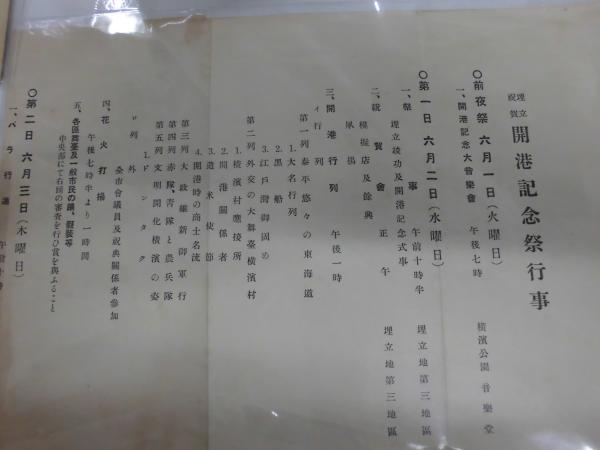 埋立祝賀 開港記念祭行事
〇前夜祭 六月一日(火曜日)
一、開港記念大音樂會 午後七時 横濱公園音樂堂
〇第一日 六月二日(水曜日)
一、祭事 午前十時半 埋立地第三地區
埋立竣功及開港記念式事
二、祝賀會 正午 埋立地第三地區
模擬店及餘興
凧揚
三、開港行列 午後一時
イ行列
第一列 泰平悠々の東海道
1.大名行列
2.黒船
3.江戸灣御固め
第二列 外交の大舞臺横濱村
1.横濱村應接所
2.開港關係者
3.遣米使節
4.開港時の商士名流
第三列 大政維新御軍行
第四列 赤隊、青隊と農兵隊
第五列 文明開化横濱の姿
1.ドンタク
ロ列外
全市會議員及祝典關係者參加
四、花火打揚
午後七時半より一時間
五、各區舞臺及一般市民の踊、假裝等
中央部にて右側の審査を行ひ賞を與ふること
〇第二日 六月三日(木曜日)
一、バラ行進 午前十時